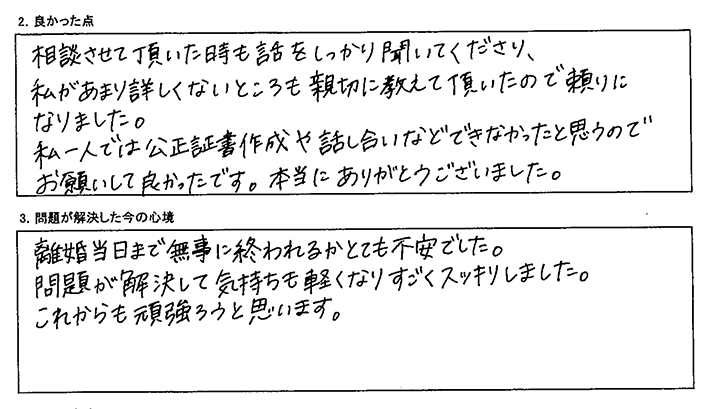 2. 良かった点
相談させて頂いた時も話をしっかり聞いてくださり、
私があまり詳しくないところも親切に教えて頂いたので頼りに
なりました。
私一人では公正証書作成や話し合いなどできなかったと思うので
お願いして良かったです。本当にありがとうございました。
3. 問題が解決した今の心境
離婚当日まで無事に終われるかとても不安でした。
問題が解決して気持ちも軽くなりすごくスッキリしました。
これからも頑強ろうと思います。